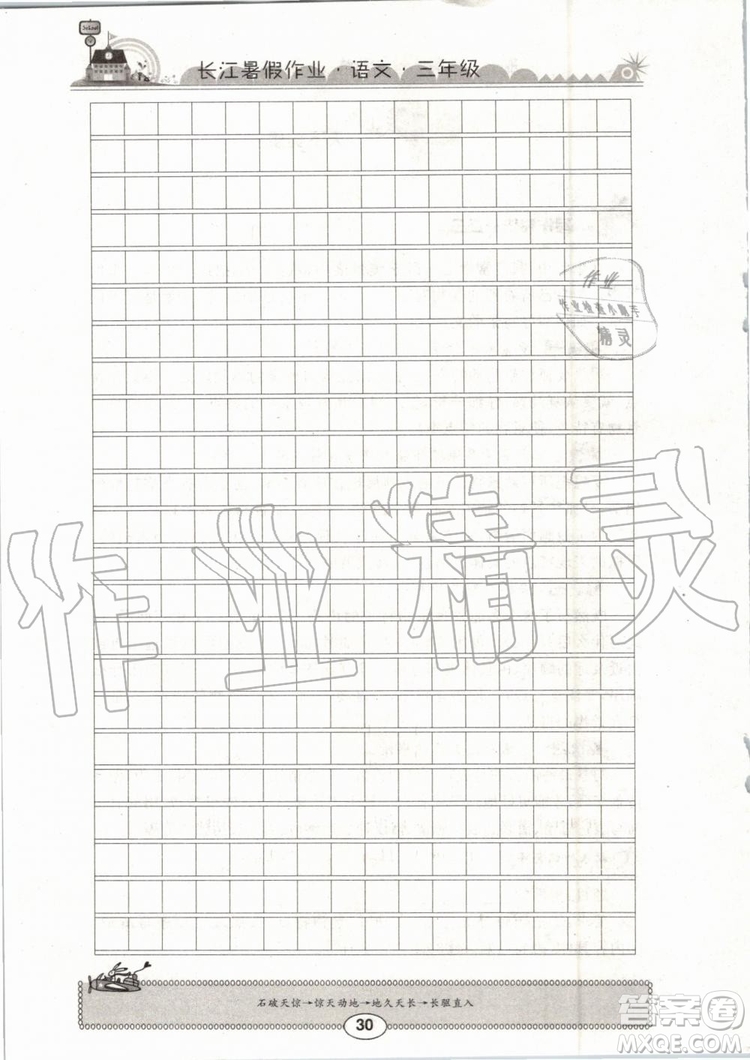 School
长江暑假作业·语文·三年级
作业
作业检查小助手
精灵
作业精灵
石破天惊→惊天动地→地久天长→长驱直入
30
答案圈
MXQE.COM